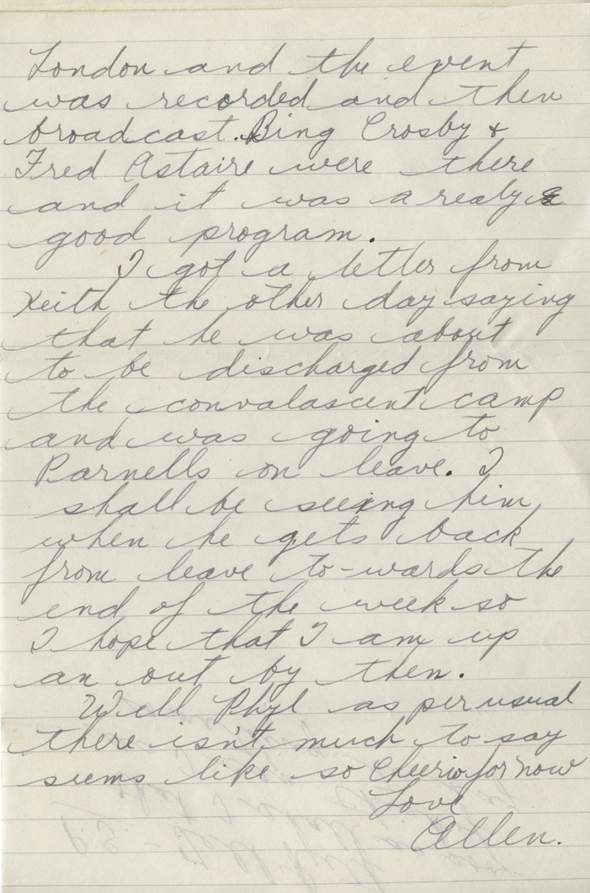 London and the event
was recorded and then
broadcast. Bing Crosby &
Fred Astaire were there
and it was a realy
good program.
I got a letter from
Keith the other day saying
that he was about
to be discharged from
the convalascent camp
and was going to
Parnells on leave. I
shall be seeing him
when he gets back
from leave to-wards the
end of the week so
I hope that I am up
an out by then.
Well Phyl as per usual
there isn't much to say
seems like so Cheerio for now
Love
Allen.
P.S. -